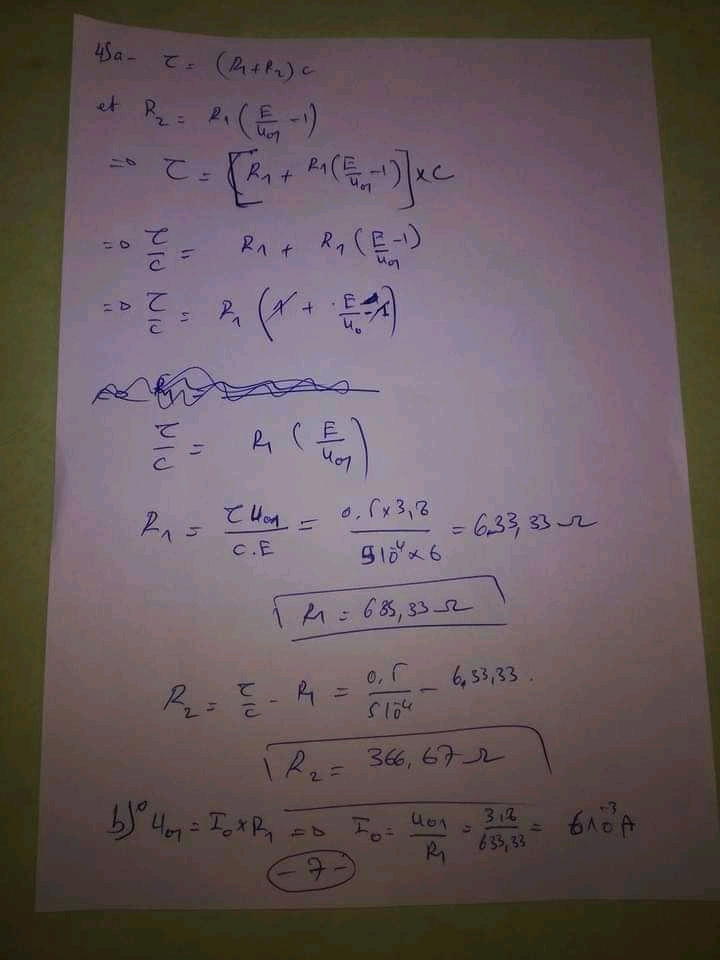 4)a- τ = (R1+R2)C
et R2 = R1(E/U01 -1)
=> τ = [R1 + R1(E/U01 -1)]×C
=> τ/C = R1 + R1(E/U01 -1)
=> τ/C = R1(1 + E/U0 -1)
τ/C = R1(E/U01)
R1 = τU01/C.E = 0.5×3,8/5 10^-4 × 6 = 633,33 Ω
R1 = 633,33 Ω
R2 = τ/C - R1 = 0,5/5 10^-4 - 633,33.
R2 = 366,67 Ω
b)° U01 = I0×R1 => I0 = U01/R1 = 3,8/633,33 = 6 10^-3 A
-7-